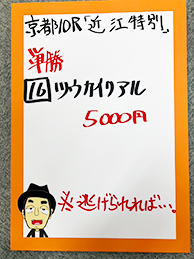 京都10R「近江特別」
単勝
16 ツウカイリアル
5000円
※逃げられれば…。